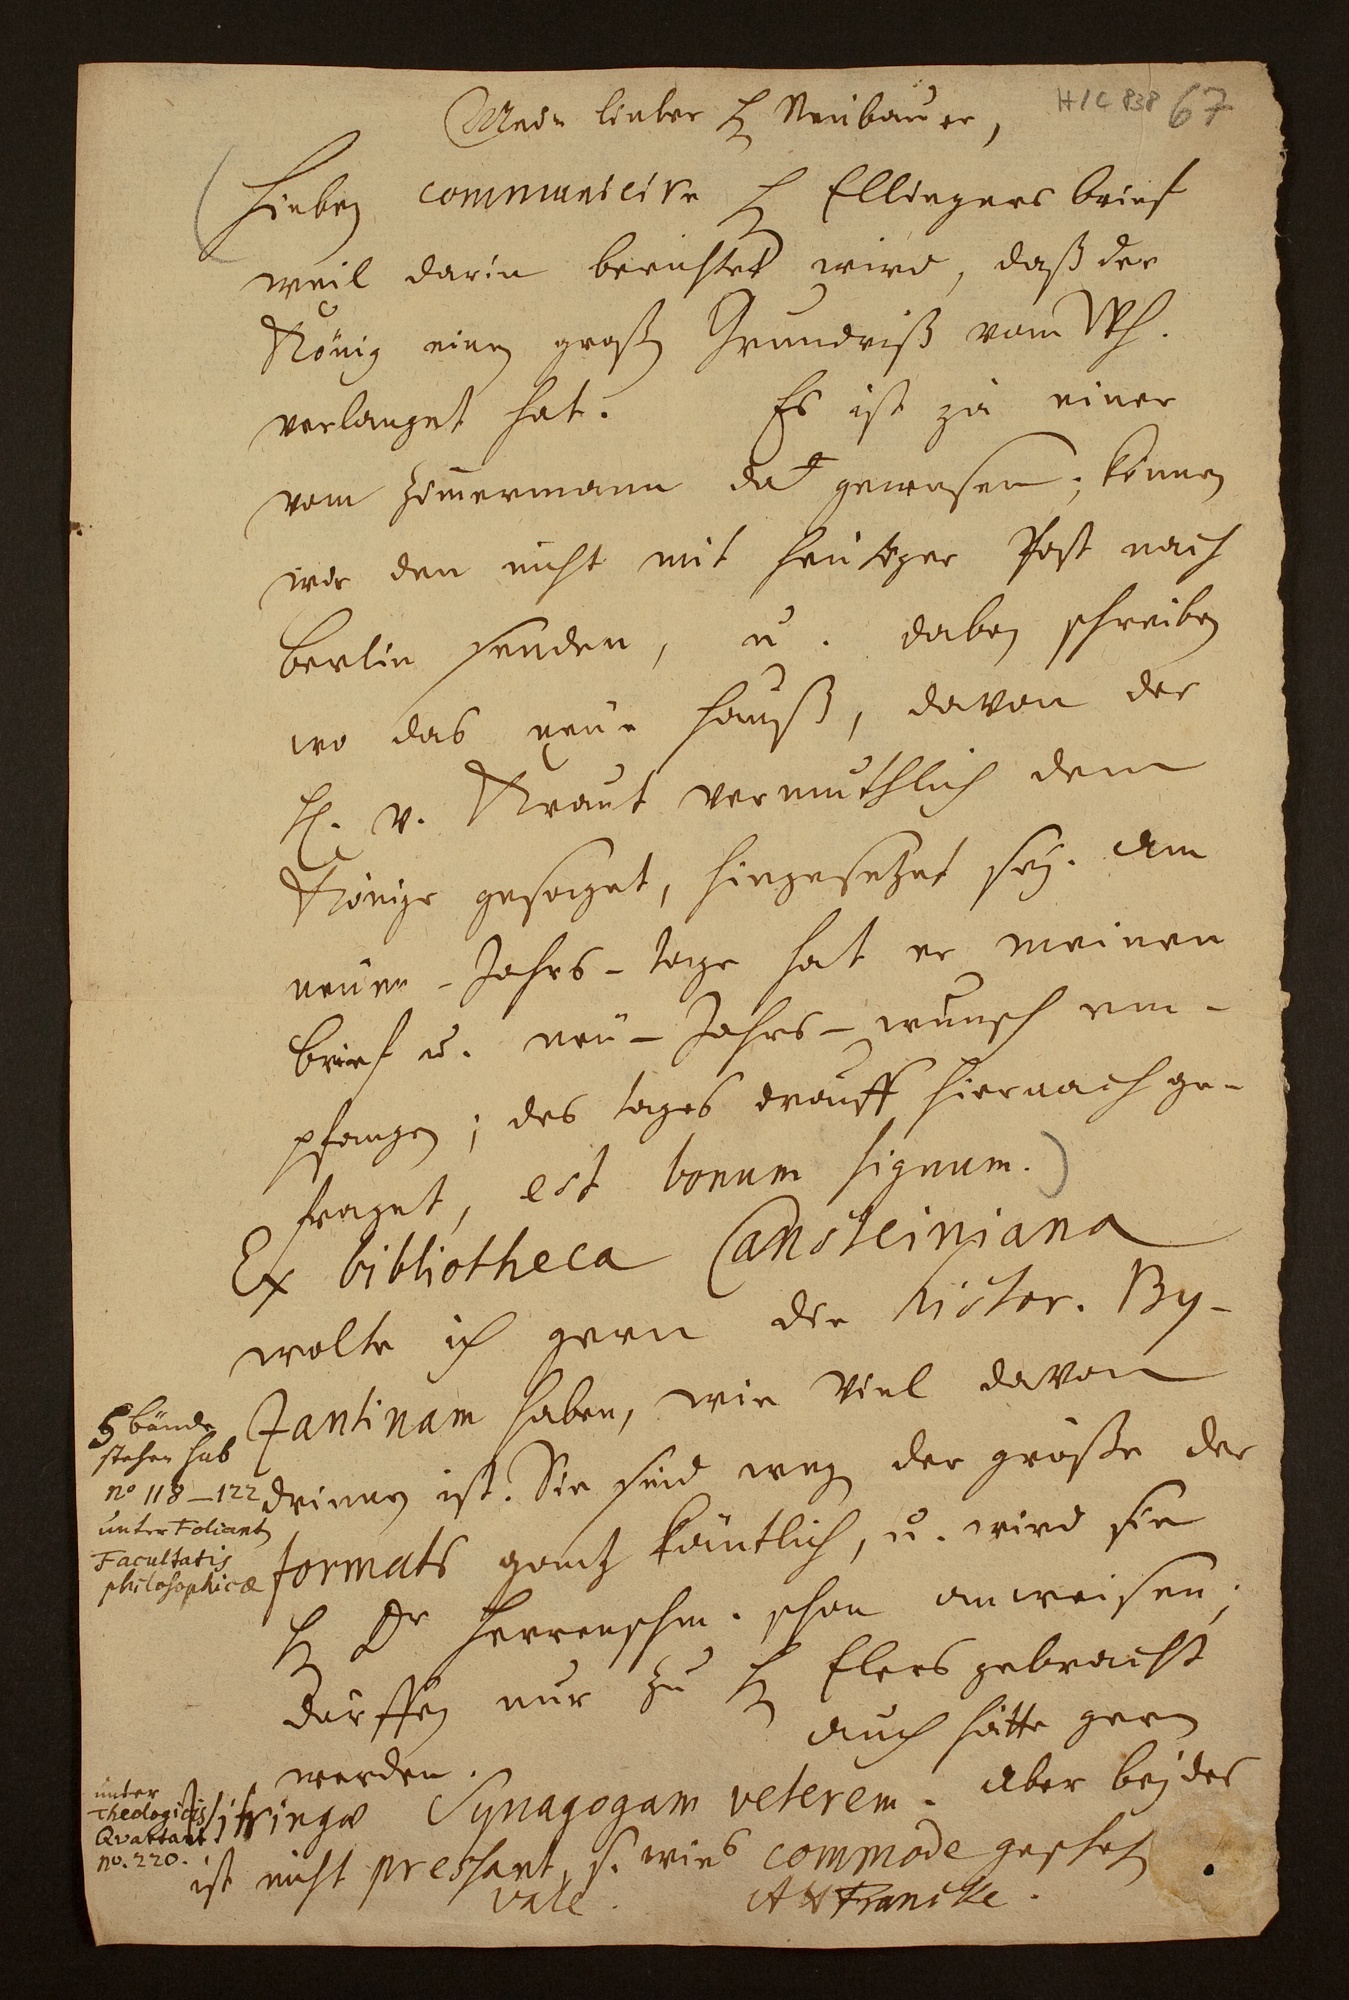 H/C 838 67
Mein lieber H Neubauer,
Hiebey communicire H Ellingers brief
weil darin berichtet wird, daß der
König einen großen Grundriß vom Wh.
verlanget hat. Es ist ja einer
vom Zimermann da gewesen; können
wir den nicht mit heutiger Post nach
Berlin senden, u. dabey schreiben
wo das neue Hauß, davon der
H. v. Kraut vermuthlich dem
Könige gesaget, hingesetzet sey. Am
neuen-Jahrs-tage hat er meinen
brief u. neu-Jahrs-wunsch em-
pfangen; des tages drauff hiernach ge-
fraget, est bonum signum.
Ex bibliotheca Cansteiniana
wolte ich gern die histor. By-
zantinam haben, wie viel davon
drinnen ist. Sie sind weg der größe des
formats gantz käntlich, u. wird sie
H Dr Herrenschm. schon anweisen;
dürffen nur zu H Elers gebracht
werden. auch hätte gern
Vitringæ Synagogam veterem. Aber beydes
ist nicht pressant, s. wies commode geschehen
Vale. AHFrancke.
5 bände
stehen hab
no 118–122
unter Foliant
Facultatis
philosophicæ
unter
Theologicis
Quartant
no. 220.